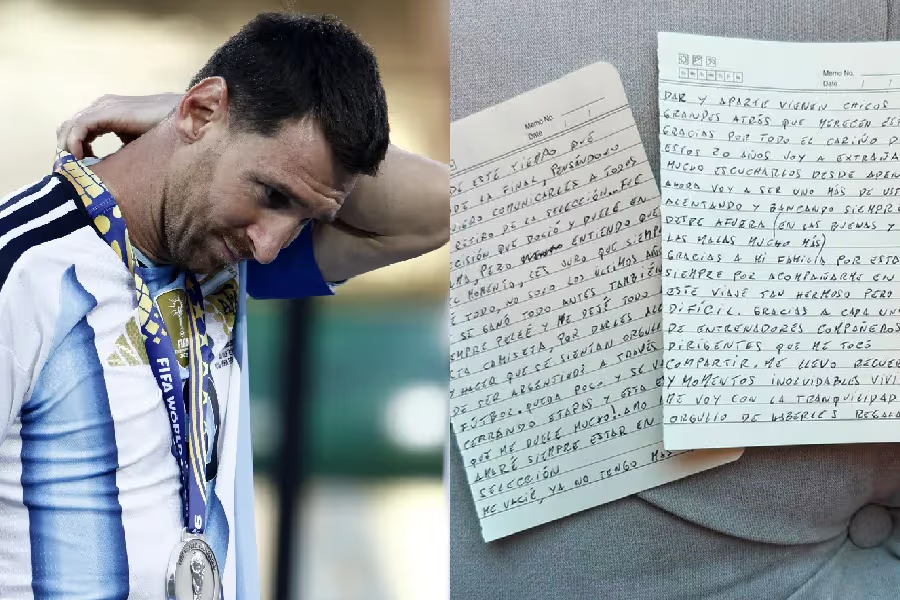 FIFA WORLD
Memo No.
Date / /
DE ESTE TIEMPO QUE
DE LA FINAL, PENSÁNDOLO
IERO COMUNICARLES A TODOS
RETIRO DE LA SELECCIÓN. FUE
CISIÓN QUE DOLIÓ Y DUELE EN
MA, PERO ENTIENDO QUE
L MOMENTO, LES JURO QUE SIEMP
E TODO, NO SOLO LOS ÚLTIMOS AÑOS
SE GANÓ TODO ANTES TAMBIÉN
MPRE PELEÉ Y ME DEJÉ TODO
TA CAMISETA, POR DARLES ALE
Y HACER QUE SE SIENTAN ORGULL
DE SER ARGENTINOS A TRAVÉS
FÚTBOL. QUEDA POCO Y SE V
CERRANDO ETAPAS Y ESTA
QUE ME DUELE MUCHO. AMO
AMARÉ SIEMPRE ESTAR EN
SELECCIÓN
ME VACIÉ, YA NO TENGO MÁS
Memo No.
Date / /
DAR Y APARTE VIENEN CHICOS
GRANDES ATRÁS QUE MERECEN ES
GRACIAS POR TODO EL CARIÑO D
ESTOS 20 AÑOS VOY A EXTRAÑA
MUCHO ESCUCHARLOS DESDE ADEN
AHORA VOY A SER UNO MÁS DE US
ALENTANDO Y BANCANDO SIEMPRE
DESDE AFUERA (EN LAS BUENAS Y
LAS MALAS MUCHO MÁS)
GRACIAS A MI FAMILIA POR ESTA
SIEMPRE POR ACOMPAÑARME EN
ESTE VIAJE TAN HERMOSO PERO
DIFÍCIL. GRACIAS A CADA UN
DE ENTRENADORES COMPAÑEROS
DIRIGENTES QUE ME TOCÓ
COMPARTIR, ME LLEVO RECUE
Y MOMENTOS INOLVIDABLES VIVI
ME VOY CON LA TRANQUILIDAD
ORGULLO DE HABERLES REGALA